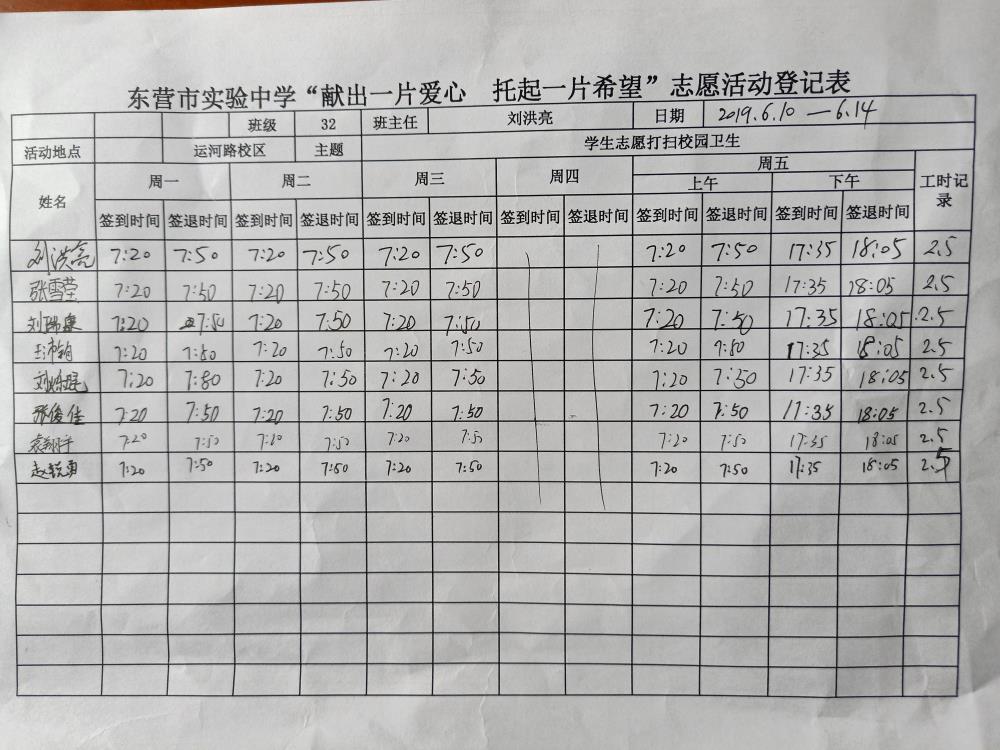 东营市实验中学“献出一片爱心 托起一片希望”志愿活动登记表
班级 32 班主任 刘洪亮 日期 2019.6.10 — 6.14
活动地点 运河路校区 主题 学生志愿打扫校园卫生
姓名 周一 周二 周三 周四 周五 工时记录
上午 下午
签到时间 签退时间 签到时间 签退时间 签到时间 签退时间 签到时间 签退时间 签到时间 签退时间 签到时间 签退时间
刘洪亮 7:20 7:50 7:20 7:50 7:20 7:50 7:20 7:50 17:35 18:05 2.5
张雪莹 7:20 7:50 7:20 7:50 7:20 7:50 7:20 7:50 17:35 18:05 2.5
刘瑞康 7:20 7:50 7:20 7:50 7:20 7:50 7:20 7:50 17:35 18:05 2.5
7:20 7:50 7:20 7:50 7:20 7:50 7:20 7:50 17:35 18:05 2.5
7:20 7:80 7:20 7:50 7:20 7:50 7:20 7:50 17:35 18:05 2.5
张俊佳 7:20 7:50 7:20 7:50 7:20 7:50 7:20 7:50 17:35 18:05 2.5
7:20 7:50 7:20 7:50 7:20 7:50 7:20 7:50 17:35 18:05 2.5
7:20 7:50 7:20 7:50 7:20 7:50 7:20 7:50 17:35 18:05 2.5